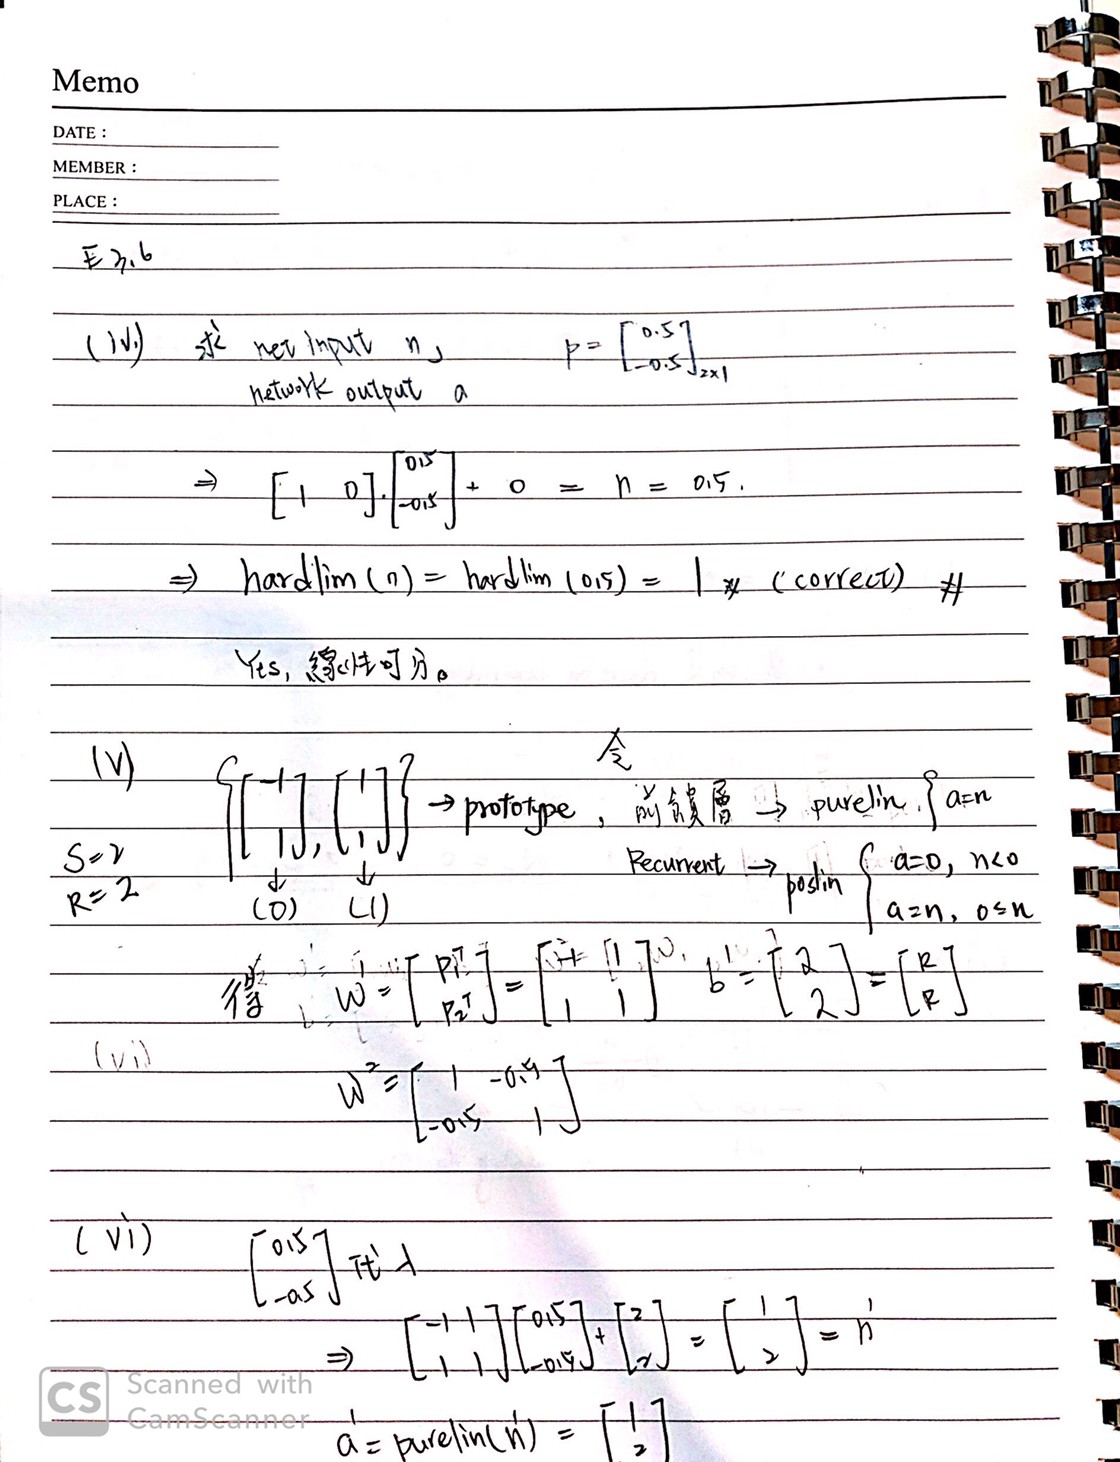 Memo
DATE :
MEMBER :
PLACE :
E 3.6
(iv) 求 net input n, p = [0.5 -0.5]2×1
network output a
⇒ [1 0]·[0.5 -0.5] + 0 = n = 0.5.
⇒ hardlim(n) = hardlim(0.5) = 1 # (correct) #
Yes, 線性可分。
(v) {[-1 1], [1 1]} → prototype, 令 前饋層 → purelin. { a=n
S=2
R=2
(0) (1)
Recurrent → poslin { a=0, n<0
a=n, 0≤n
得 W¹ = [P₁ᵀ P₂ᵀ] = [-1 1 1 1] b¹ = [2 2] = [R R]
(vi)
W² = [1 -0.5 -0.5 1]
(vi) [0.5 -0.5] 代入
⇒ [-1 1 1 1][0.5 -0.5] + [2 2] = [1 2] = n¹
a¹ = purelin(n¹) = [1 2]
CS Scanned with
CamScanner